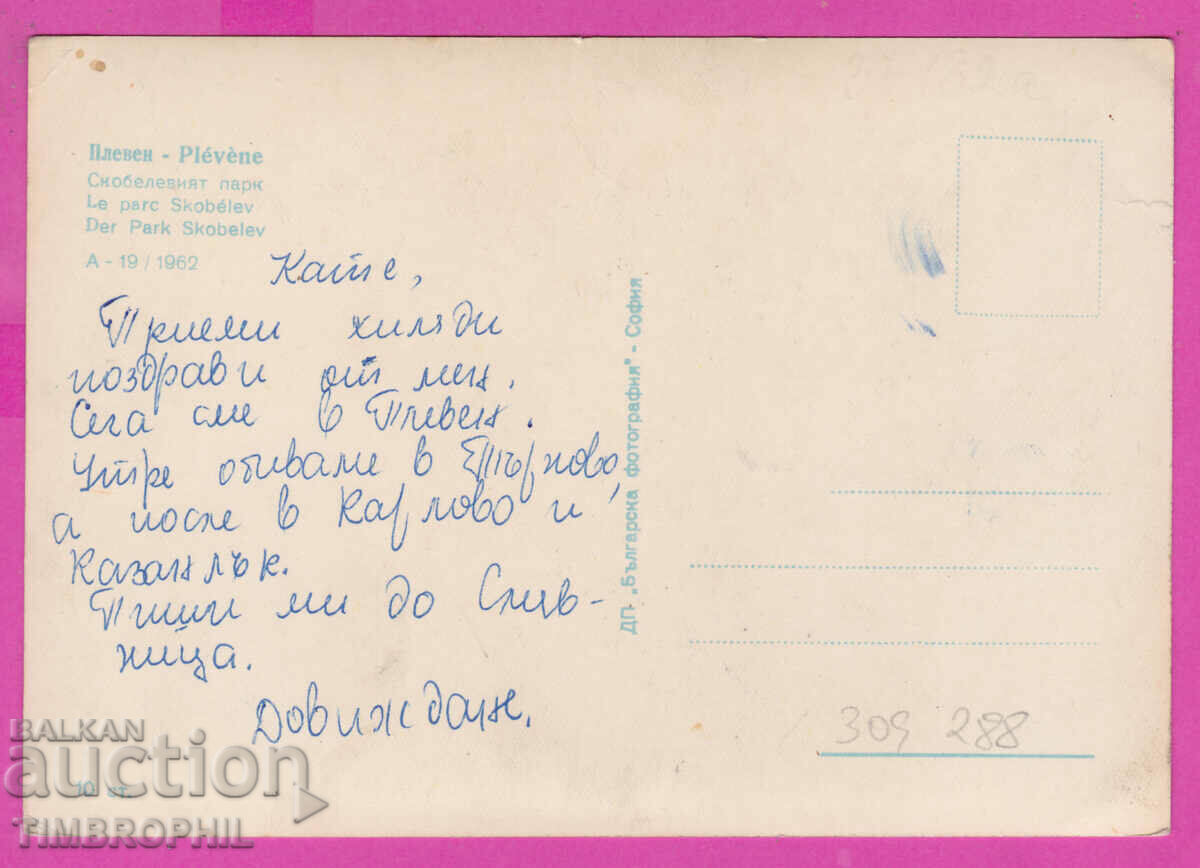 Плевен - Plévène
Скобелевият парк
Le parc Skobélev
Der Park Skobelev
А - 19 / 1962
Кате,
Приеми хиляди
поздрави от мен.
Сега сме в Плевен.
Утре отиваме в Търново,
а после в Карлово и
Казанлък.
Пиши ми до Слив-
ница.
Довиждане.
ДП „Българска фотография" - София
309 288
10 ст.
BALKAN
auction
TIMBROPHIL